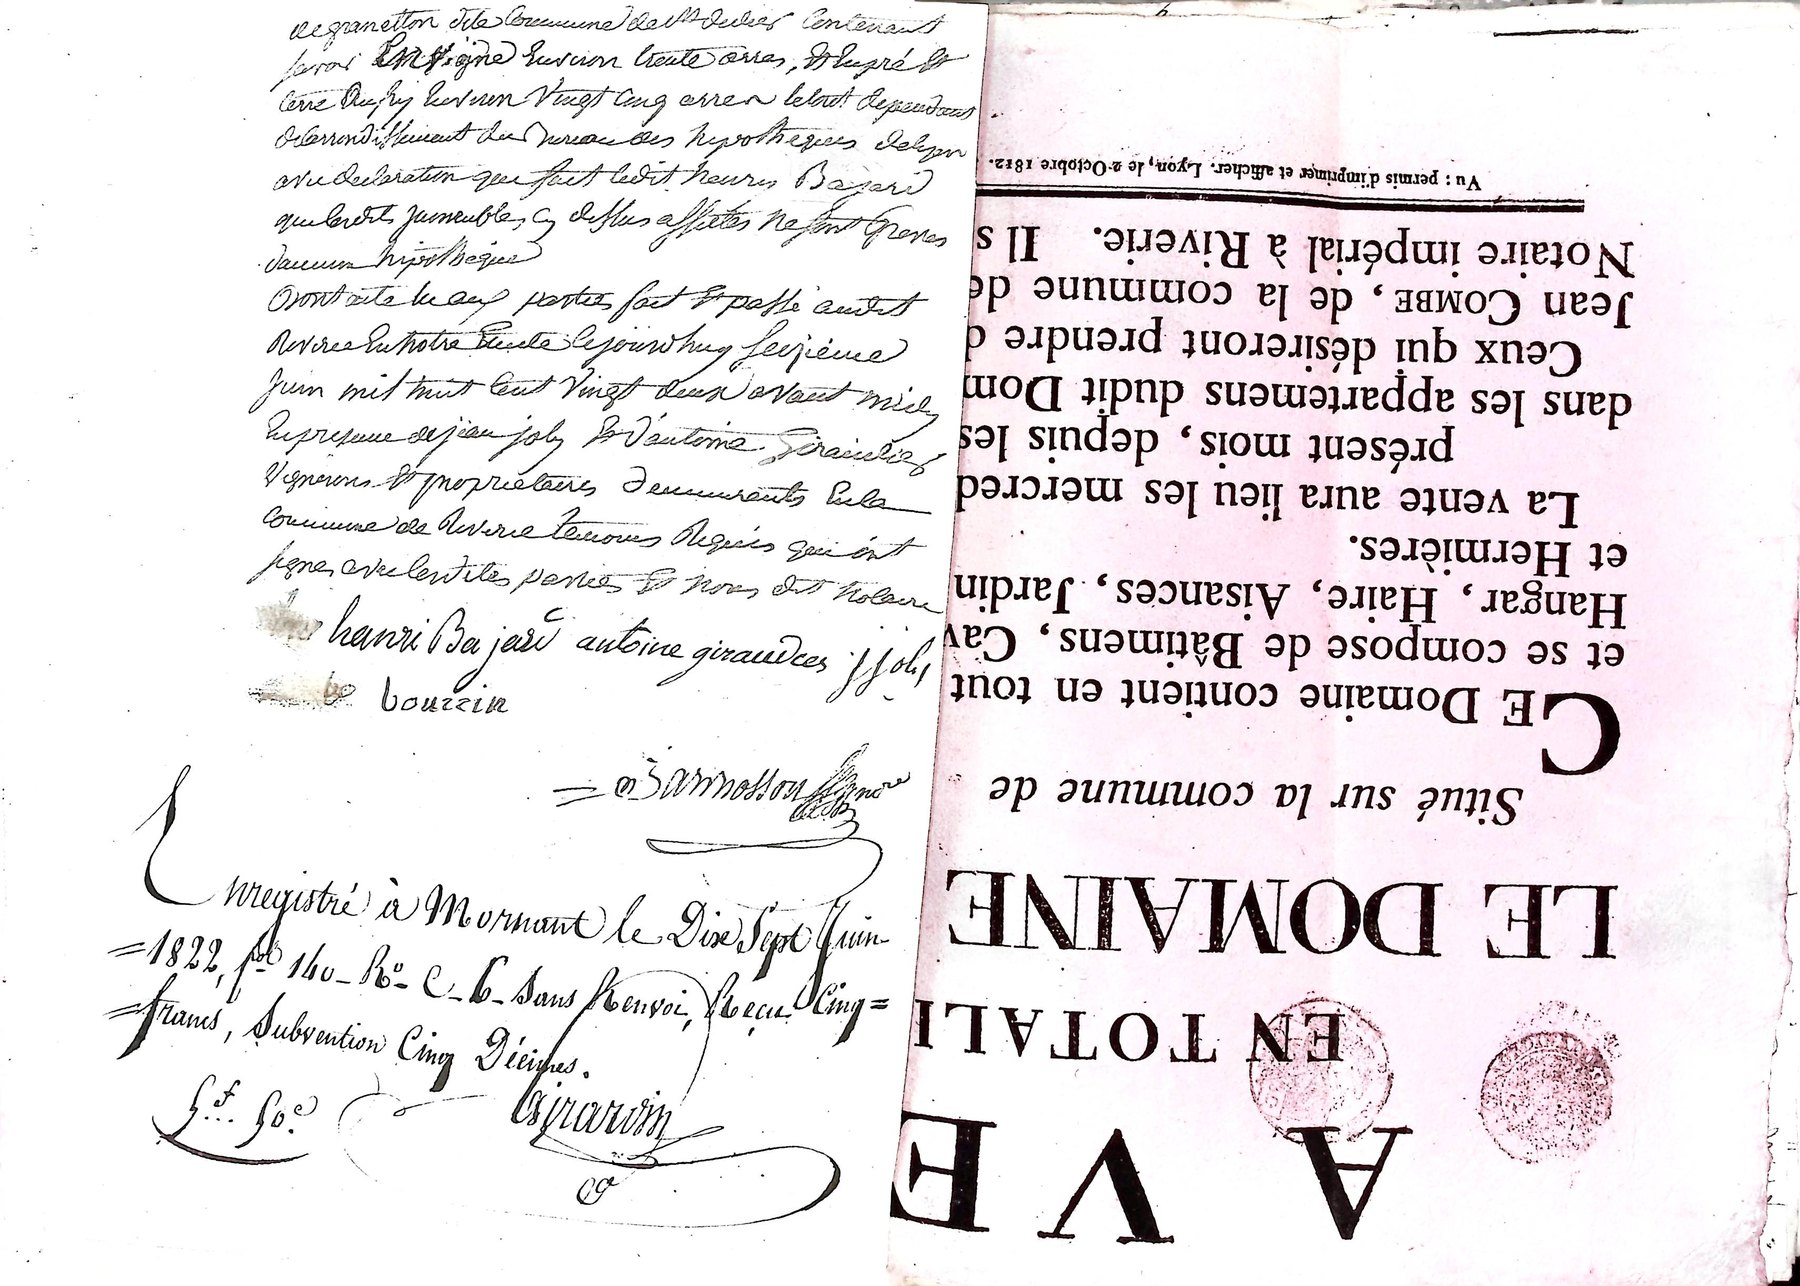 de granetton dite Commune de St didier Contenant
savoir En Vigne Environ trente arres, Et En pré Et
terre Environ Vingt Cinq arres le tout dependant
de larrondissement du Bureau des hipotheques de lyon
avec declaration que fait ledit henris Bajard
que lesdits jmmeubles cy dessus affectés ne sont Greves
daucun hipothèque
Dont acte lu aux parties fait Et passé audit
Riverie En notre Etude Cejourdhuy seizième
Juin mil huit Cent Vingt deux avant midy
En presence de jean joly Et d'antoine Giraudier
Vignerons Et proprietaires demeurants En la
Commune de Riverie temoins Requis qui ont
signes avec lesdites parties Et nous dit Notaire
henri Bajard antoine giraudier j joly
bourrin
Enregistré à Mornant le Dix Sept Juin
1822, fol 140 Ro C. 6. Sans Renvoi, Reçu Cinq
francs, Subvention Cinq Décimes.
5f.. 50c.
Girardin
A VE
EN TOTALI
LE DOMAINE
Situé sur la commune de
CE Domaine contient en tout
et se compose de Bâtimens, Cav
Hangar, Haire, Aisances, Jardin
et Hermières.
La vente aura lieu les mercred
présent mois, depuis les
dans les appartemens dudit Dom
Ceux qui désireront prendre d
Jean COMBE, de la commune de
Notaire impérial à Riverie. Il s
Vu : permis d'imprimer et afficher. Lyon, le 2 Octobre 1812.